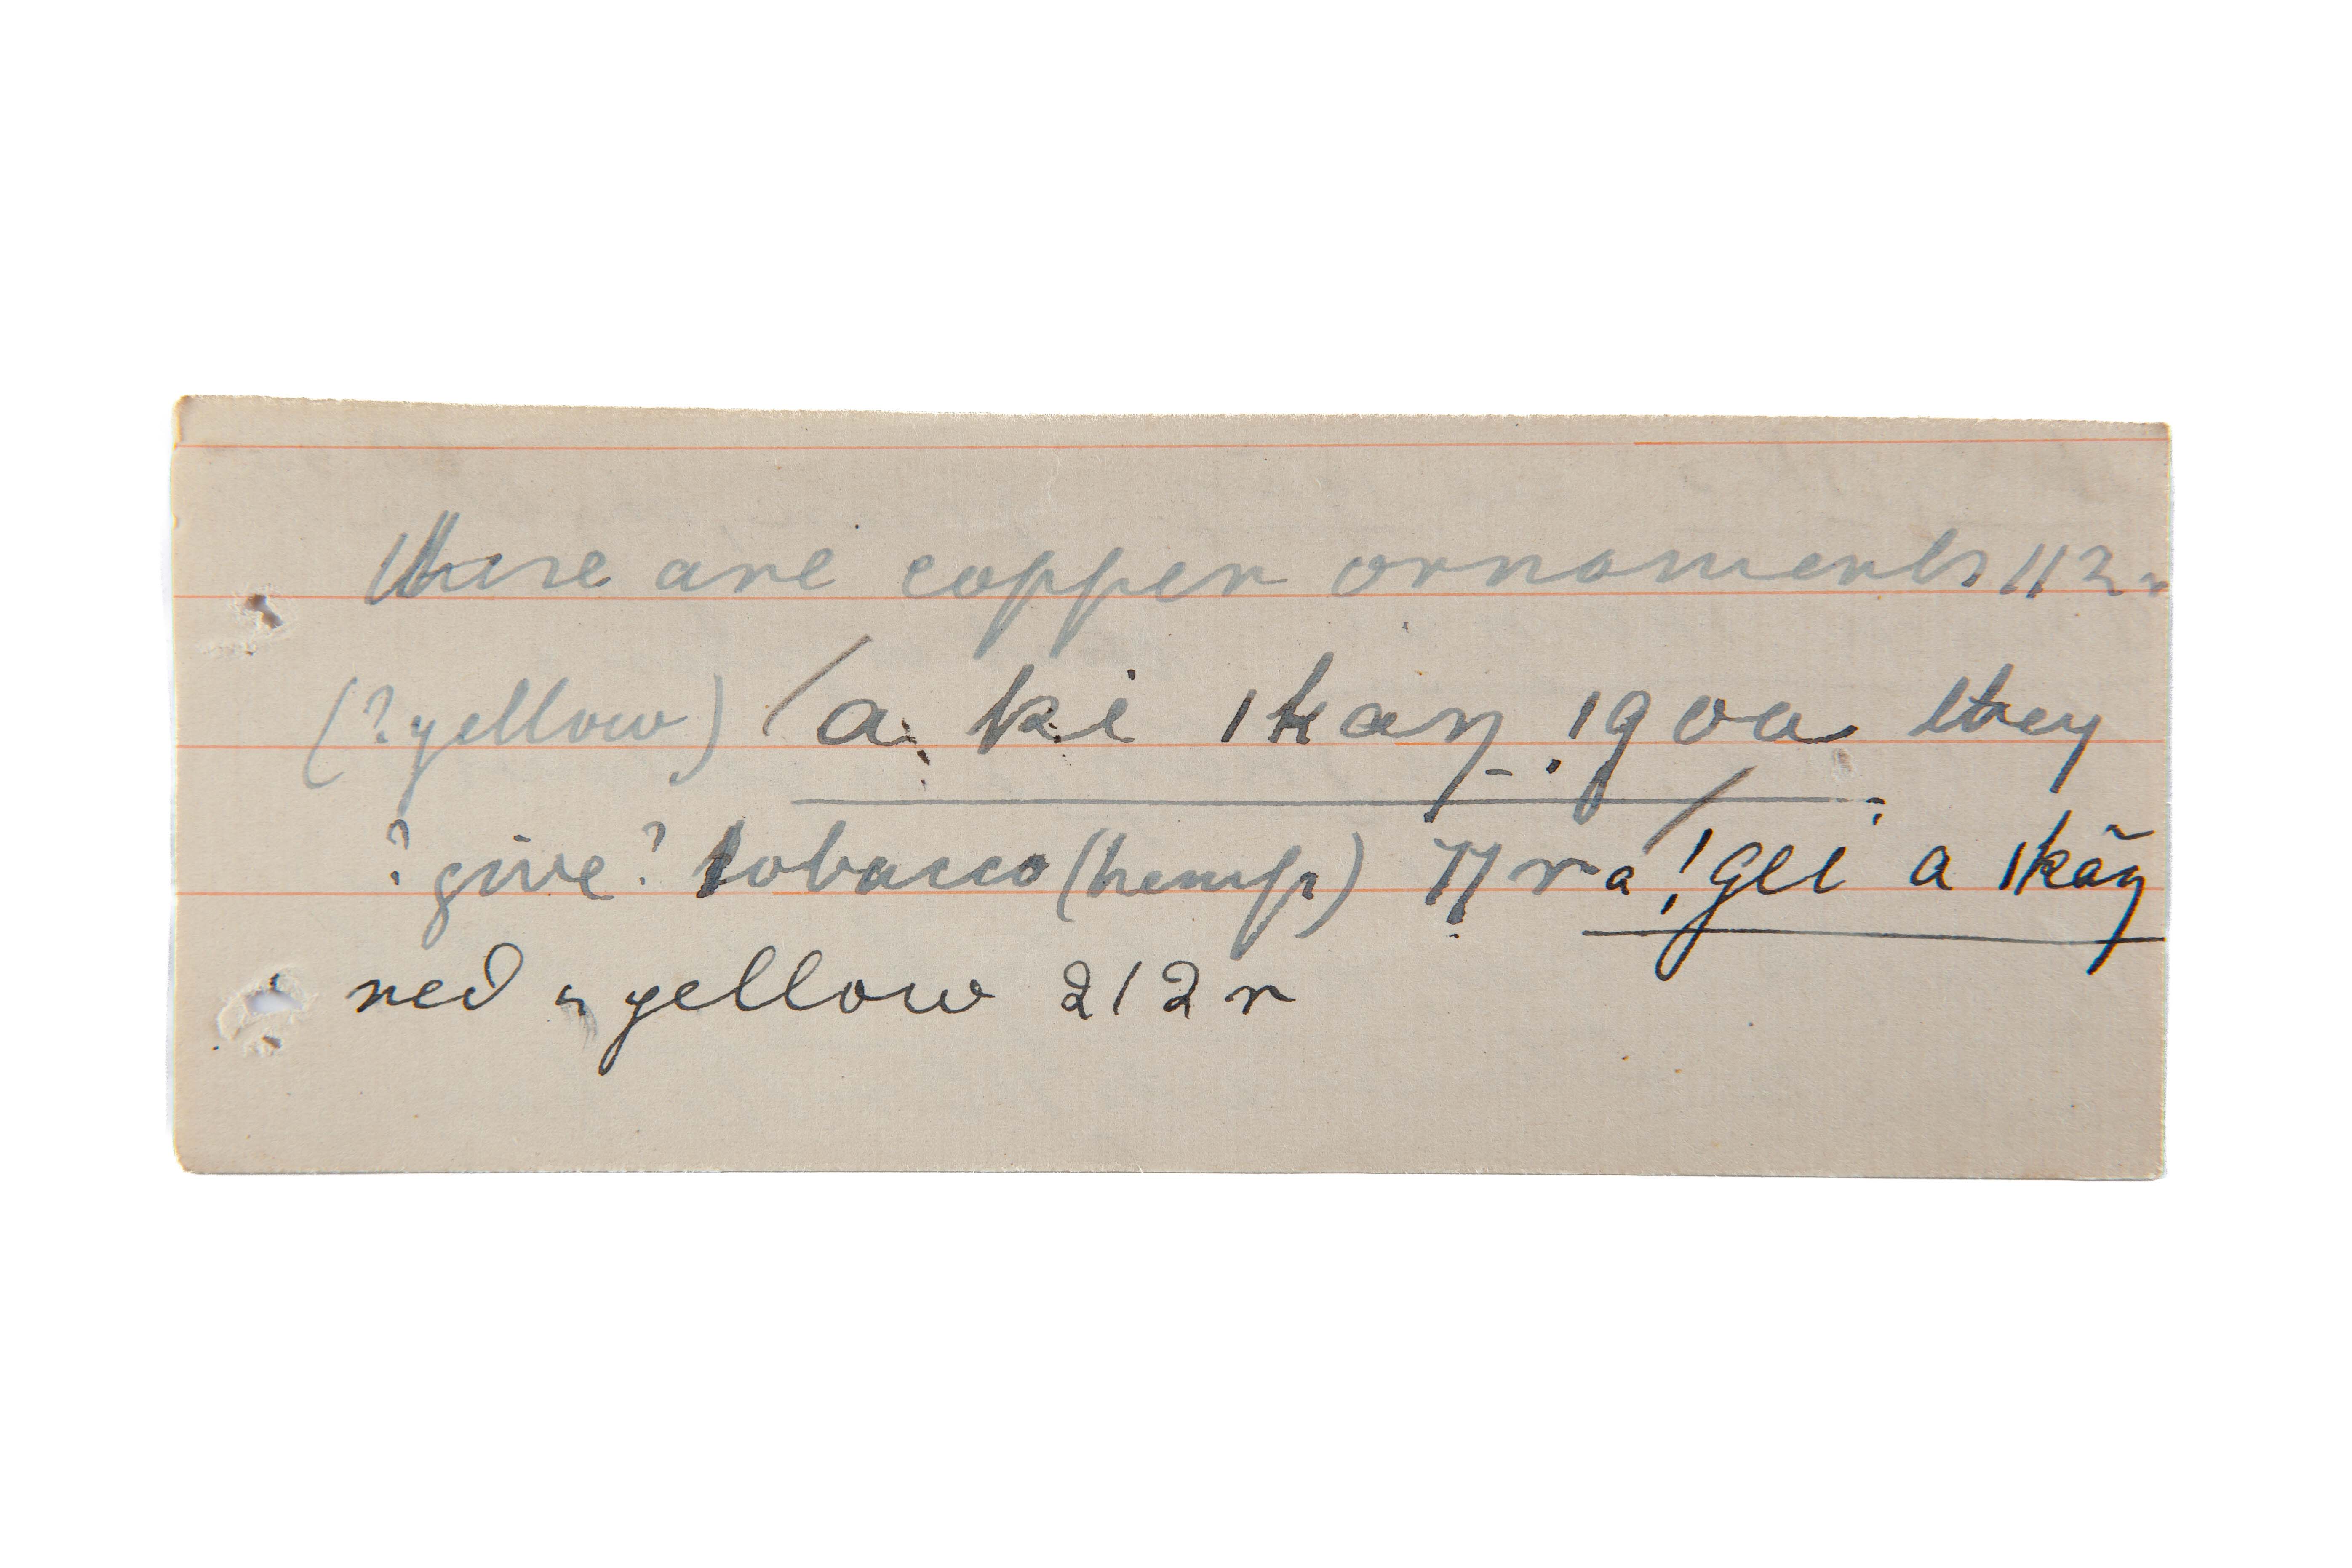 there are copper ornaments 112r
(? yellow) /a ki ǀkaŋ ǃgoa they
? give? tobacco (hemp) 77 r /a ǃgei a ǀkãŋ
red n yellow 212 r